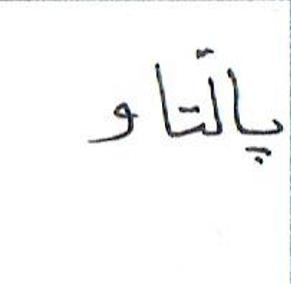 پالتاو